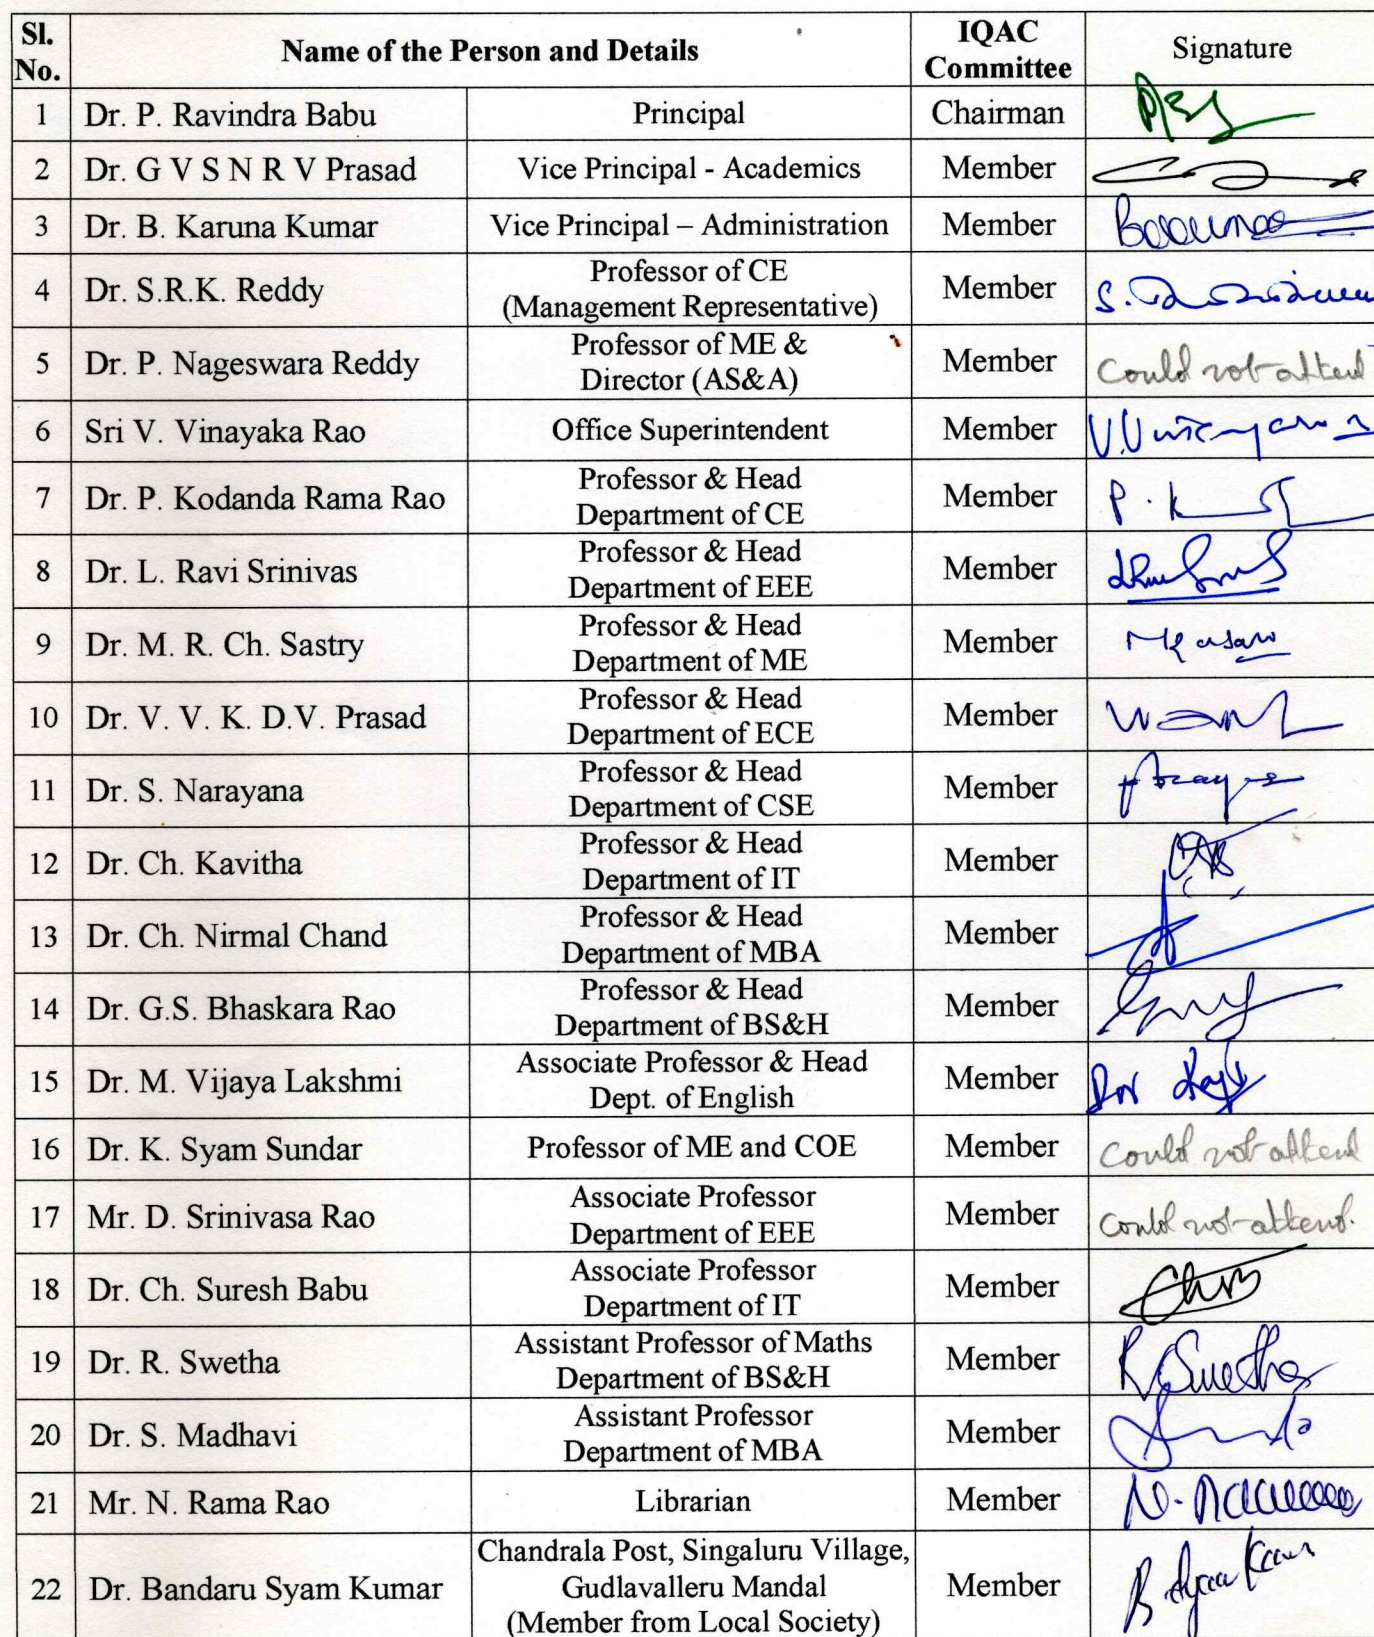 Sl. No. Name of the Person and Details IQAC Committee Signature
1 Dr. P. Ravindra Babu Principal Chairman
2 Dr. G V S N R V Prasad Vice Principal - Academics Member
3 Dr. B. Karuna Kumar Vice Principal – Administration Member
4 Dr. S.R.K. Reddy Professor of CE (Management Representative) Member
5 Dr. P. Nageswara Reddy Professor of ME & Director (AS&A) Member Could not attend
6 Sri V. Vinayaka Rao Office Superintendent Member
7 Dr. P. Kodanda Rama Rao Professor & Head Department of CE Member
8 Dr. L. Ravi Srinivas Professor & Head Department of EEE Member
9 Dr. M. R. Ch. Sastry Professor & Head Department of ME Member
10 Dr. V. V. K. D.V. Prasad Professor & Head Department of ECE Member
11 Dr. S. Narayana Professor & Head Department of CSE Member
12 Dr. Ch. Kavitha Professor & Head Department of IT Member
13 Dr. Ch. Nirmal Chand Professor & Head Department of MBA Member
14 Dr. G.S. Bhaskara Rao Professor & Head Department of BS&H Member
15 Dr. M. Vijaya Lakshmi Associate Professor & Head Dept. of English Member
16 Dr. K. Syam Sundar Professor of ME and COE Member Could not attend
17 Mr. D. Srinivasa Rao Associate Professor Department of EEE Member Could not attend.
18 Dr. Ch. Suresh Babu Associate Professor Department of IT Member
19 Dr. R. Swetha Assistant Professor of Maths Department of BS&H Member R. Swetha
20 Dr. S. Madhavi Assistant Professor Department of MBA Member
21 Mr. N. Rama Rao Librarian Member
22 Dr. Bandaru Syam Kumar Chandrala Post, Singaluru Village, Gudlavalleru Mandal (Member from Local Society) Member